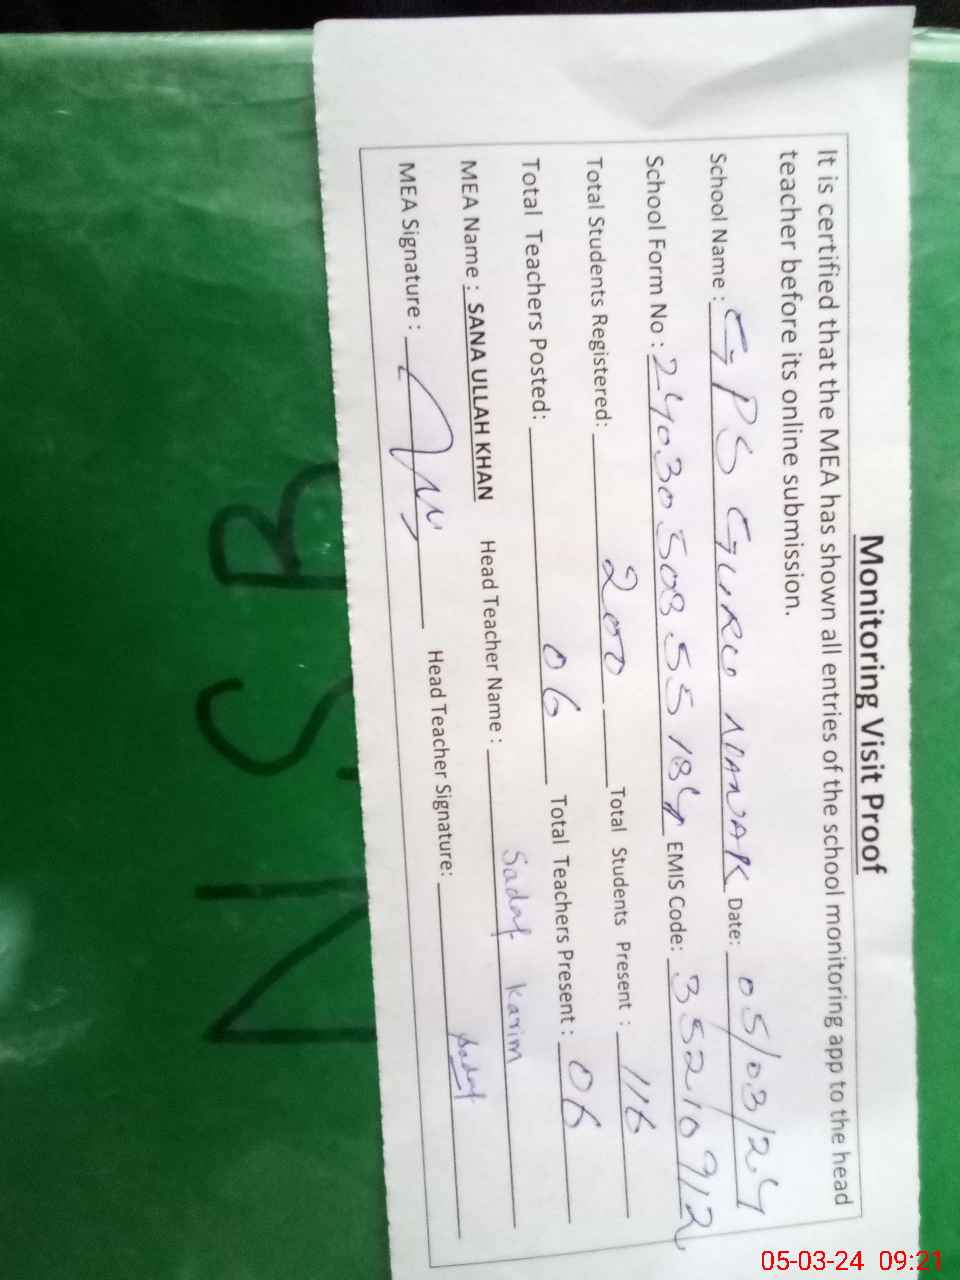 Monitoring Visit Proof
It is certified that the MEA has shown all entries of the school monitoring app to the head
teacher before its online submission.
School Name : GPS GURU NANAK Date: 05/03/24
School Form No : 2403050855184 EMIS Code: 35210912
Total Students Registered: 200 Total Students Present : 116
Total Teachers Posted: 06 Total Teachers Present : 06
MEA Name : SANA ULLAH KHAN Head Teacher Name : Sadaf Karim
MEA Signature : Head Teacher Signature: Sadaf
NSB
05-03-24 09:21